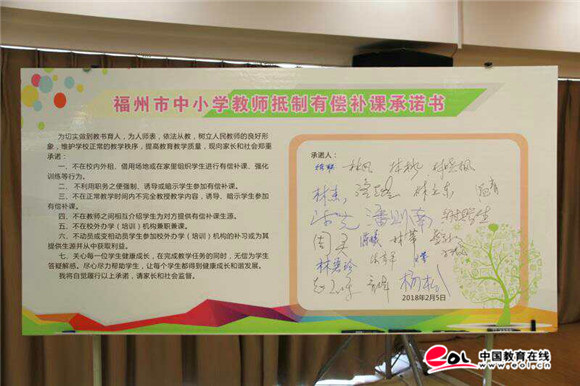 福州市中小学教师抵制有偿补课承诺书
为切实做到教书育人，为人师表，依法从教，树立人民教师的良好形
象，维护学校正常的教学秩序，提高教育教学质量，现向家长和社会郑重
承诺：
一、不在校内外租、借用场地或在家里组织学生进行有偿补课、强化
训练等行为。
二、不利用职务之便强制、诱导或暗示学生参加有偿补课。
三、不在正常教学时间内不完全教授教学内容，诱导、暗示学生参加
有偿补课。
四、不在教师之间相互介绍学生为对方提供有偿补课生源。
五、不在校外办学（培训）机构兼职兼课。
六、不动员或变相动员学生参加校外办学（培训）机构的补习或为其
提供生源并从中获取利益。
七、关心每一位学生健康成长，在完成教学任务的同时，无偿为学生
答疑解惑，尽心尽力帮助学生，让每个学生都得到健康成长和谐发展。
我将自觉履行以上承诺，请家长和社会监督。
承诺人：
2018年2月5日
eol 中国教育在线
www.eol.cn